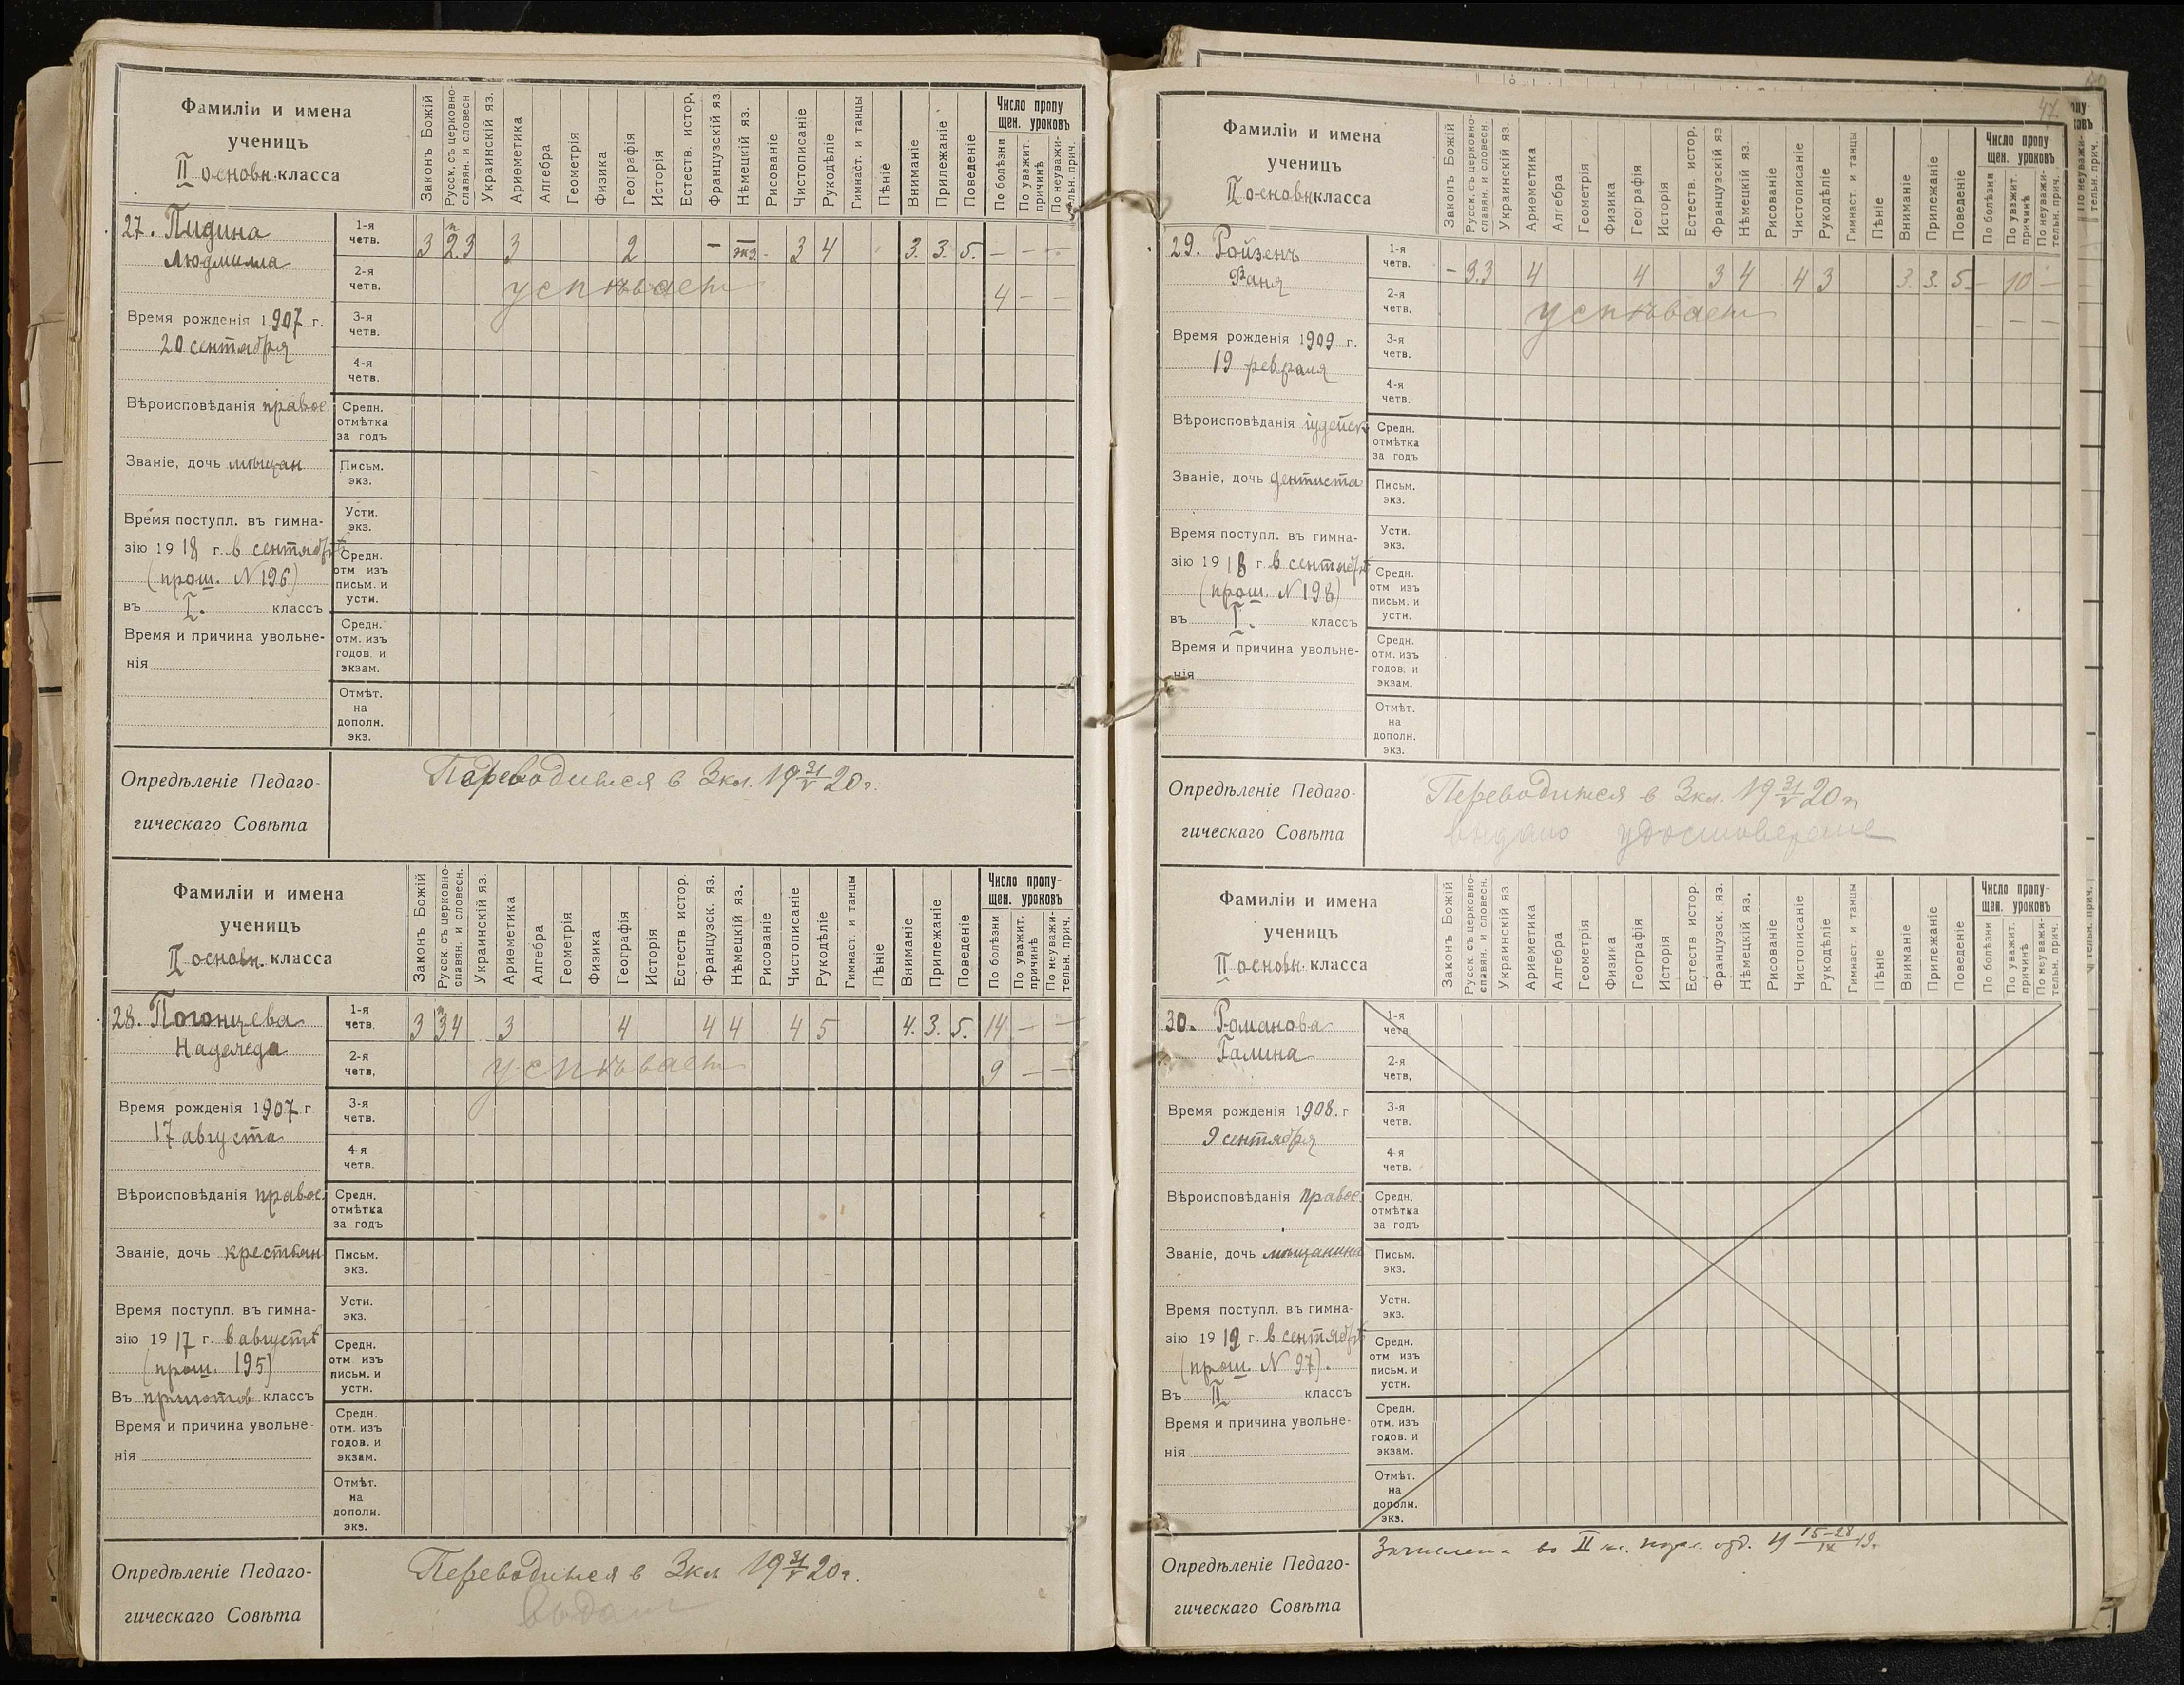 Фамиліи и имена
ученицъ
II основн. класса
Законъ Божій
Русск. съ церковно-славян. и словесн
Украинскій яз.
Ариѳметика
Алгебра
Геометрія
Физика
Географія
Исторія
Естеств. истор.
Французскій яз
Нѣмецкій яз.
Рисованіе
Чистописаніе
Рукодѣліе
Гимнаст. и танцы
Пѣніе
Вниманіе
Прилежаніе
Поведеніе
Число пропущен. уроковъ
По болѣзни
По уважит. причинѣ
По неуважительн. прич.
27. Пидина
Людмила
Время рожденія 1907 г.
20 сентября
Вѣроисповѣданія правос.
Званіе, дочь мѣщан
Время поступл. въ гимна-
зію 1918 г. в сентябрѣ
(прош. N 196)
въ I. классъ
Время и причина увольне-
нія
1-я четв. 3 2.3 3 2 – экз. - 3 4 3. 3. 5. – – –
2-я четв. успѣвает 4 – –
3-я четв.
4-я четв.
Средн. отмѣтка за годъ
Письм. экз.
Устн. экз.
Средн. отм изъ письм. и устн.
Средн. отм. изъ годов. и экзам.
Отмѣт. на дополн. экз.
Опредѣленіе Педаго-
гическаго Совѣта
Переводится в 3 кл. 19 31/V 20 г.
Фамиліи и имена
ученицъ
II основн. класса
Законъ Божій
Русск. съ церковно-славян. и словесн.
Украинскій яз.
Ариѳметика
Алгебра
Геометрія
Физика
Географія
Исторія
Естеств истор.
Французск. яз.
Нѣмецкій яз.
Рисованіе
Чистописаніе
Рукодѣліе
Гимнаст. и танцы
Пѣніе
Вниманіе
Прилежаніе
Поведеніе
Число пропу-
щен. уроковъ
По болѣзни
По уважит. причинѣ
По неуважительн. прич.
28. Погонцева
Надежда
Время рожденія 1907 г
17 августа
Вѣроисповѣданія правос.
Званіе, дочь крестьян
Время поступл. въ гимна-
зію 1917 г. в августѣ
(прош. 195)
Въ приготов. классъ
Время и причина увольне-
нія
1-я четв. 3 3 4 3 4 4 4 4 5 4. 3. 5. 14 – –
2-я четв. успѣвает 9 – –
3-я четв.
4-я четв.
Средн. отмѣтка за годъ
Письм. экз.
Устн. экз.
Средн. отм изъ письм. и устн.
Средн. отм. изъ годов. и экзам.
Отмѣт. на дополн. экз.
Опредѣленіе Педаго-
гическаго Совѣта
Переводится в 3 кл 19 31/V 20 г.
47.
Фамиліи и имена
ученицъ
II основн класса
Законъ Божій
Русск. съ церковно-славян. и словесн.
Украинскій яз.
Ариѳметика
Алгебра
Геометрія
Физика
Географія
Исторія
Естеств. истор.
Французскій яз
Нѣмецкій яз.
Рисованіе
Чистописаніе
Рукодѣліе
Гимнаст. и танцы
Пѣніе
Вниманіе
Прилежаніе
Поведеніе
Число пропу
щен. уроковъ
По болѣзни
По уважит. причинѣ
По неуважительн. прич.
29. Ройзенъ
Фаня
Время рожденія 1909 г.
19 февраля
Вѣроисповѣданія іудейск
Званіе, дочь дентиста
Время поступл. въ гимна-
зію 1918 г. в сентябрѣ
(прош. N 198)
въ I. классъ
Время и причина увольне-
нія
1-я четв. – 3.3 4 4 3 4 4 3 3. 3. 5 – 10 –
2-я четв. успѣвает – – –
3-я четв.
4-я четв.
Средн. отмѣтка за годъ
Письм. экз.
Устн. экз.
Средн. отм изъ письм. и устн.
Средн. отм. изъ годов. и экзам.
Отмѣт. на дополн. экз.
Опредѣленіе Педаго-
гическаго Совѣта
Переводится в 3 кл. 19 31/V 20 г
выдано удостоверение
Фамиліи и имена
ученицъ
II основн. класса
Законъ Божій
Русск. съ церковно-славян. и словесн.
Украинскій яз
Ариѳметика
Алгебра
Геометрія
Физика
Географія
Исторія
Естеств истор.
Французск. яз.
Нѣмецкій яз.
Рисованіе
Чистописаніе
Рукодѣліе
Гимнаст и танцы
Пѣніе
Вниманіе
Прилежаніе
Поведеніе
Число пропу-
щен. уроковъ
По болѣзни
По уважит. причинѣ
По неуважительн. прич.
30. Романова
Галина
Время рожденія 1908. г
9 сентября
Вѣроисповѣданія правос.
Званіе, дочь мѣщанина
Время поступл. въ гимна-
зію 1919 г. в сентябрѣ
(прош. N 97).
Въ II классъ
Время и причина увольне-
нія
1-я четв.
2-я четв.
3-я четв.
4-я четв.
Средн. отмѣтка за годъ
Письм. экз.
Устн. экз.
Средн. отм изъ письм. и устн.
Средн. отм. изъ годов. и экзам.
Отмѣт. на дополн. экз.
Опредѣленіе Педаго-
гическаго Совѣта
Зачислена во II кл. 19 15–28/IX 19 г.